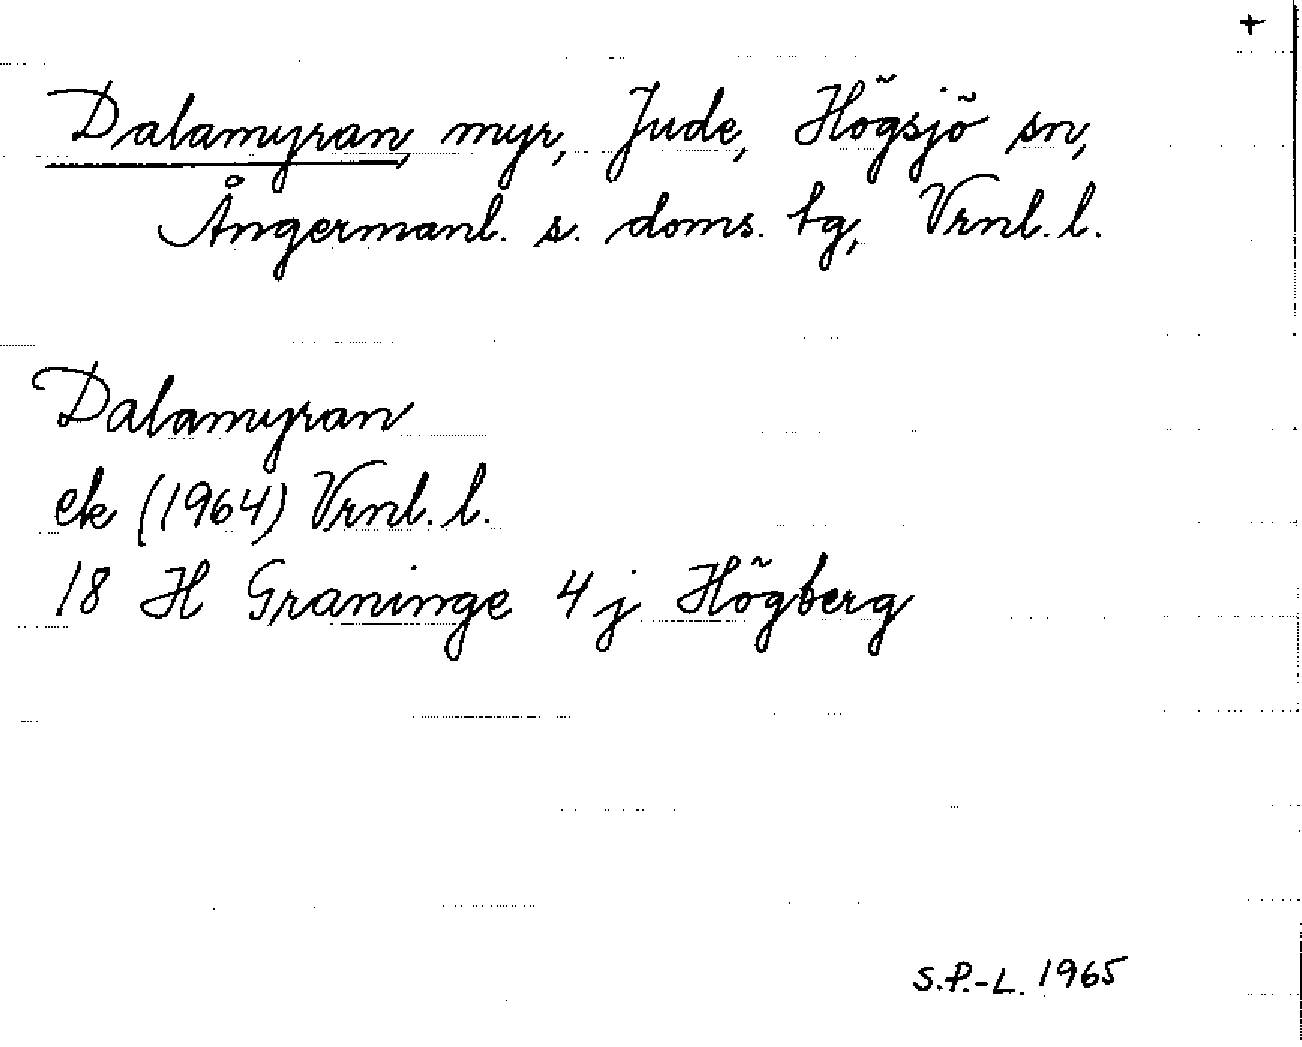 +
Dalamyran, myr, Jude, Högsjö sn,
Ångermanl. s. doms. tg, Vrnl. l.
Dalamyran
ek (1964) Vrnl. l.
18 H Graninge 4 j Högberg
S.P.-L. 1965